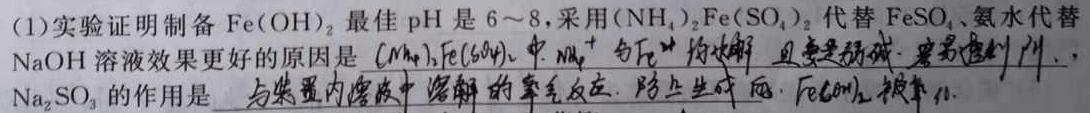 (1)实验证明制备 Fe(OH)₂ 最佳 pH 是 6～8,采用(NH₄)₂Fe(SO₄)₂ 代替 FeSO₄、氨水代替
NaOH 溶液效果更好的原因是 (NH₄)₂Fe(SO₄)₂ 中 NH₄⁺ 与Fe²⁺ 均水解 且氨是弱碱. 容易控制 pH.,
Na₂SO₃ 的作用是 与装置内溶液中溶解的氧气反应. 防止生成的 Fe(OH)₂ 被氧化.